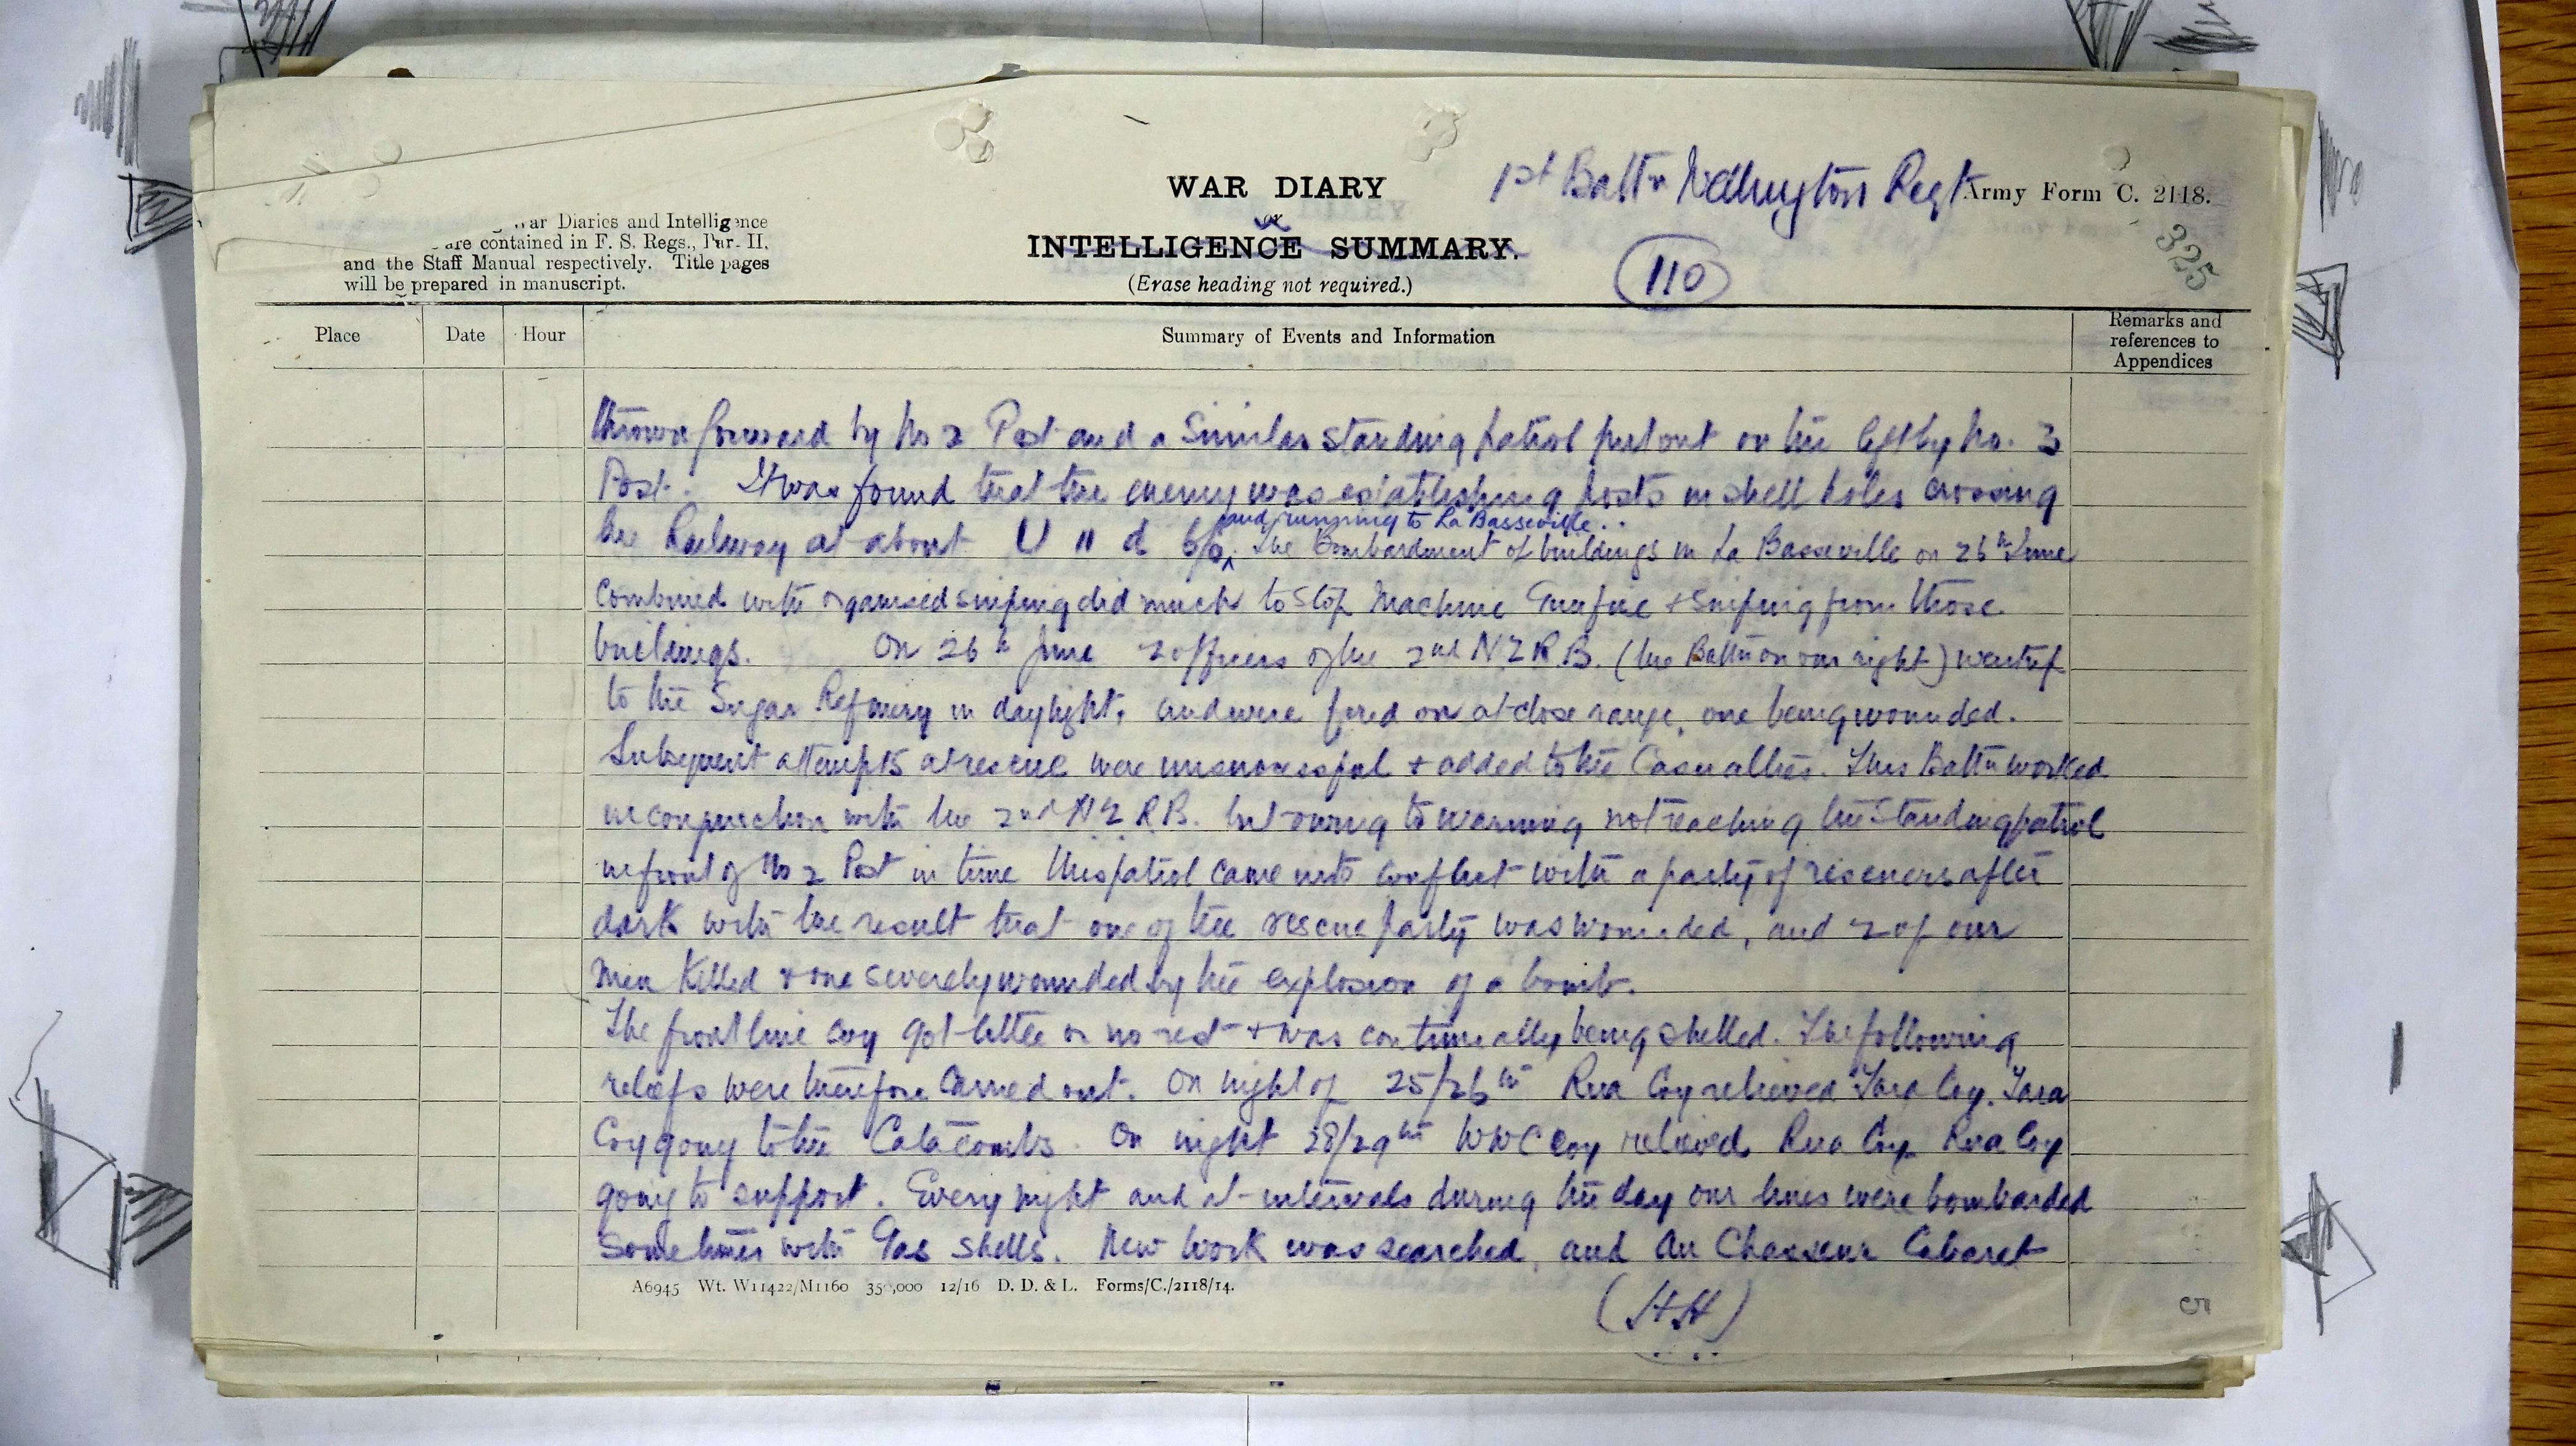 WAR DIARY
or
INTELLIGENCE SUMMARY.
(Erase heading not required.)
1st Battn Wellington Regt
Army Form C. 2118.
110
325
War Diaries and Intelligence
are contained in F. S. Regs., Part II,
and the Staff Manual respectively. Title pages
will be prepared in manuscript.
Place
Date
Hour
Summary of Events and Information
Remarks and
references to
Appendices
thrown forward by No 2 Post and a similar standing patrol put out on the left by No. 3
Post. It was found that the enemy was establishing posts in shell holes crossing
and running to La Basseville..
the Railway at about U 11 d 6/6. The Bombardment of buildings in La Basseville on 26th June
combined with organised sniping did much to stop Machine Gun fire + sniping from those
buildings. On 26th June 2 officers of the 2nd N Z R B. (the Battn on our right) went up
to the Sugar Refinery in daylight, and were fired on at close range, one being wounded.
Subsequent attempts at rescue were unsuccessful + added to the Casualties. This Battn worked
in conjunction with the 2nd N Z R B. but owing to warning not reaching the standing patrol
in front of No 2 Post in time this patrol came into conflict with a party of rescuers after
dark with the result that one of the rescue party was wounded, and 2 of our
men killed + one severely wounded by the explosion of a bomb.
The front line coy got little or no rest + was continually being shelled. The following
reliefs were therefore carried out. On night of 25/26th Rua Coy relieved Tara Coy. Tara
Coy going to the Catacombs. On night 28/29th WWC coy relieved Rua Coy Rua Coy
going to support. Every night and at intervals during the day our lines were bombarded
sometimes with Gas shells. New work was searched, and Au Chasseur Cabaret
A6945 Wt. W11422/M1160 350,000 12/16 D. D. & L. Forms/C./2118/14.
(HH)
5